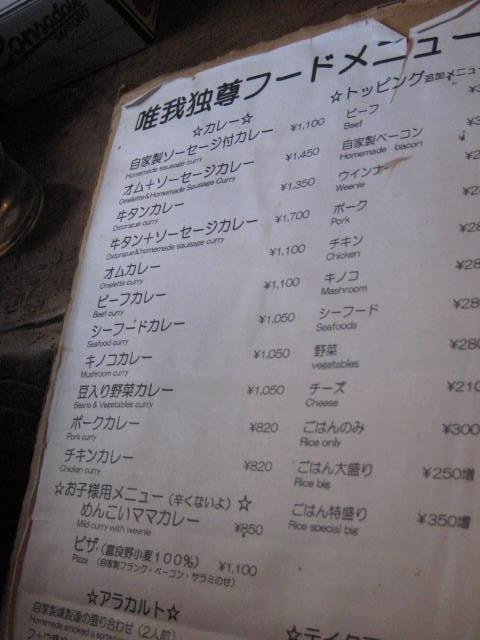 Consadole
SAPPORO
唯我独尊フードメニュー
☆カレー☆
自家製ソーセージ付カレー ¥1,100
Homemade sausage curry
オム+ソーセージカレー ¥1,450
Omelette&Homemade Sausage Curry
牛タンカレー ¥1,350
Oxtongue curry
牛タン+ソーセージカレー ¥1,700
Oxtongue&homemade sausage curry
オムカレー ¥1,100
Omelette curry
ビーフカレー ¥1,100
Beef curry
シーフードカレー ¥1,050
Seafood curry
キノコカレー ¥1,050
Mushroom curry
豆入り野菜カレー ¥1,050
Beans & Vegetables curry
ポークカレー ¥820
Pork curry
チキンカレー ¥820
Chicken curry
☆お子様用メニュー(辛くないよ)☆
めんこいママカレー ¥850
Mild curry with weenie
ピザ(富良野小麦100%) ¥1,100
Pizza (自家製フランク・ベーコン・サラミのせ)
☆アラカルト☆
自家製燻製達の盛り合わせ(2人前)
Homemade smoked
☆トッピング追加メニュー
ビーフ
Beef
自家製ベーコン
Homemade bacon
ウインナー
Weenie
ポーク
Pork
チキン
Chicken
キノコ
Mashroom
シーフード
Seafoods
野菜 ¥280
vegetables
チーズ ¥210
Cheese
ごはんのみ ¥300
Rice only
ごはん大盛り ¥250増
Rice big
ごはん特盛り ¥350増
Rice special big